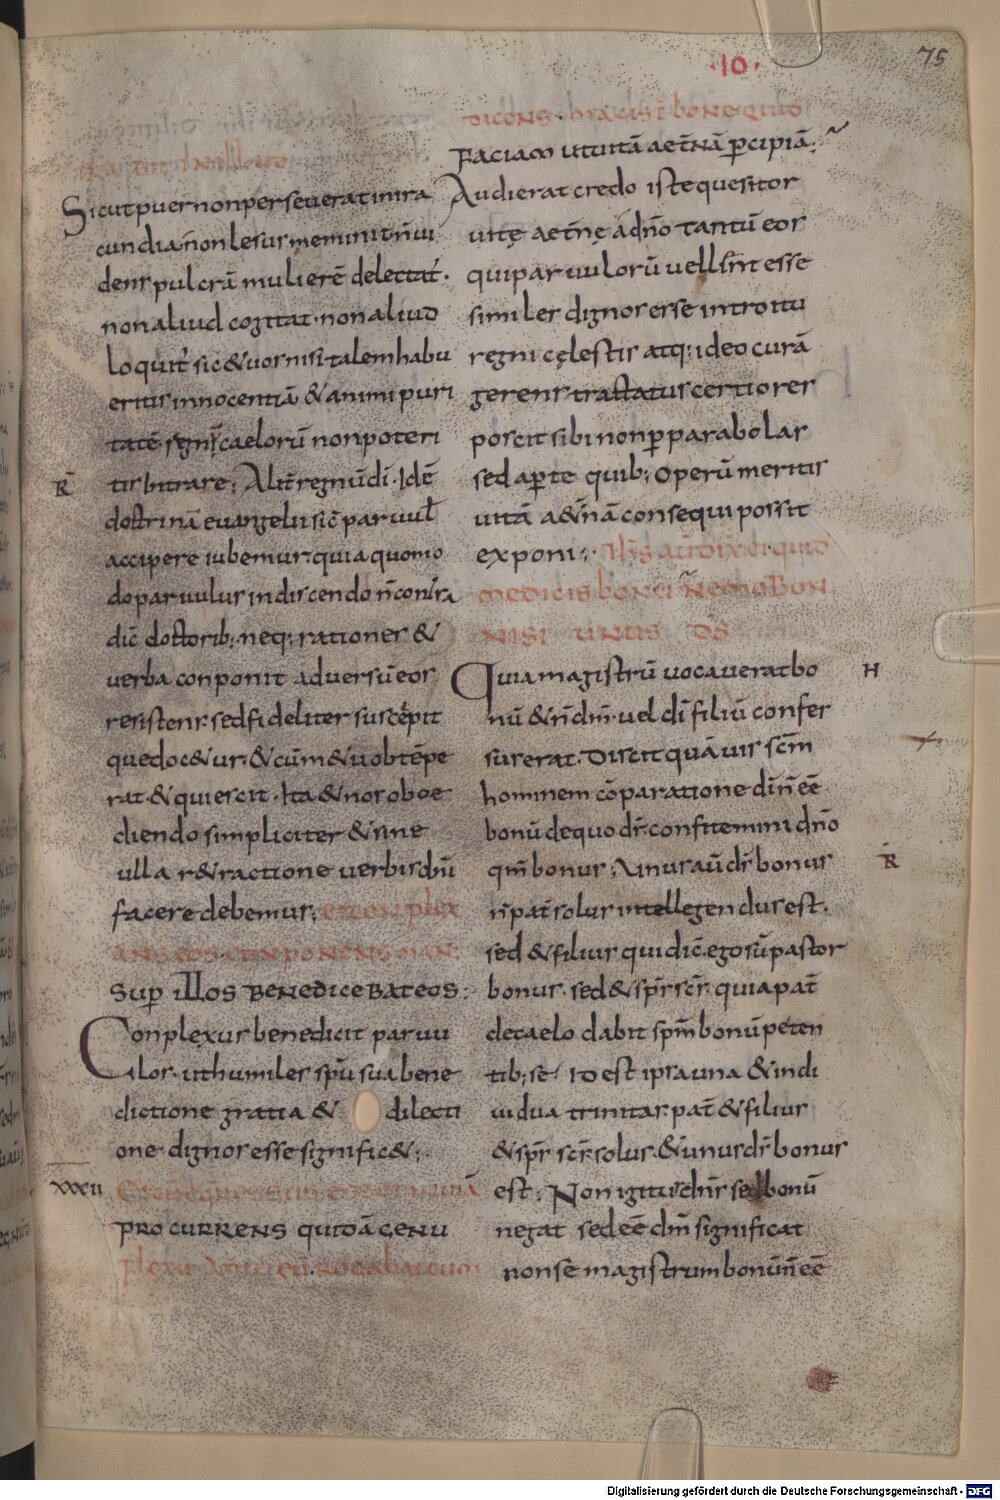 ·10·
75
trabit in illud
Sicut puer non perseverat in ira
cundia. non lesus meminit. n̄ vi
dens pulcrā mulierē delectat̄.
non aliud cogitat. non aliud
loquit̄. sic & vos nisi talem habu
eritis innocentiā & animi puri
tatē. regnū caelorū non poteri
R̄
tis intrare; Alit̄ regnū dī. Idē
doctrinā evangelii sic̄ parvul̄
accipere iubemur. quia quomo
do parvulus in discendo n̄ contra
dic̄ doctorib; neq; rationes &
verba conponit adversū eos
resistens. sed fideliter suscēpit
que doc&ur. & cū m&u obtēpe
rat. & quiescit. Ita & nos oboe
diendo simpliciter & sine
ulla r&ractione verbis dn̄i
facere debemus; et conplex
ans eos. et inponens man.
sup illos benedicebat eos:
Conplexus benedicit parvu
los. ut humiles spū sua bene
dictione gratia & dilecti
one dignos esse signific&;
xxxii
procurrens quidā genu
flexu ante eū rogabat eum
dicens. magister bone quid
faciam ut vitā aet̄nā pcipiā;
Audierat credo iste quesitor
vitę aet̄nę a dn̄o tantū eos
qui parvulorū vellint esse
similes dignos esse introitu
regni cęlestis atq; ideo curā
gerens tractatus certiores
poscit sibi non p parabolas
sed aperte quib; operū meritis
vitā a&n̄ā consequi possit
exponi; Ihs̄ aū dix̄ ei quid
me dicis bonū. nemo bon.
nisi unus d̄s
Quia magistrū vocaverat bo
H
nū & n̄ dm̄. vel dī filiū confes
sus erat. Discit quā vis scm̄
hominem cōparatione dī n̄ eē
bonū de quo dr̄ confitemini dn̄o
qm̄ bonus; Unus aū dr̄ bonus
R̄
n̄ pat̄ solus intellegendus est.
sed & filius qui dic̄. ego sū pastor
bonus. sed & spr̄ scr̄. quia pat̄
de caelo dabit spm̄ bonū peten
tib; se. id est ipsa una & indi
vidua trinitas. pat̄ & filius
& spr̄ scr̄. solus. & unus dr̄ bonus
est; Non igitur dn̄r se bonū
negat sed eē dm̄ significat
non se magistrum bonū n̄ eē
Digitalisierung gefördert durch die Deutsche Forschungsgemeinschaft - DFG